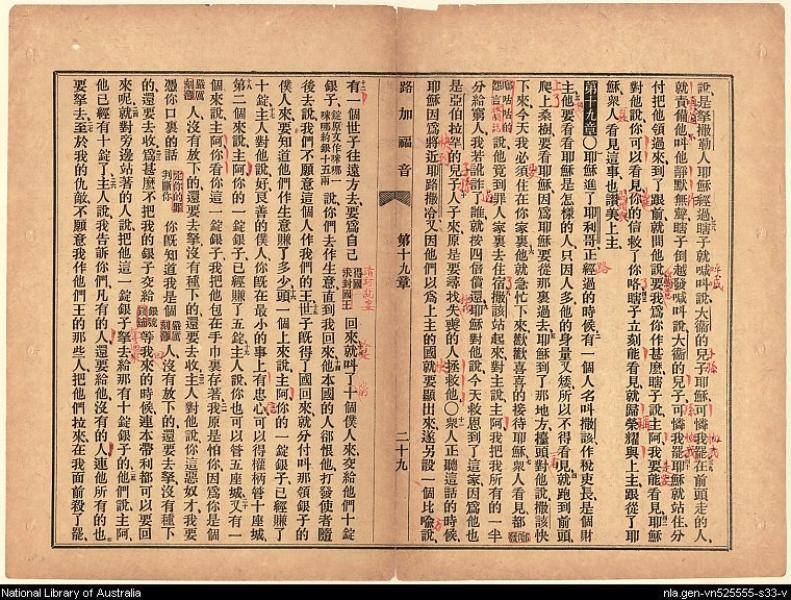 說、是拏撒勒人耶穌經過、瞎子就喊叫說、大衞的兒子耶穌、可憐我罷、在前頭走的人、
就責備他、叫他靜默無聲、瞎子倒越發喊叫說、大衞的兒子可憐我罷、耶穌就站住、分
付把他領過來、到了跟前、就問他說、要我為你作甚麼、瞎子說、主阿、我要能看見、耶穌
對他說、你可以看見、你的信救了你咯、瞎子立刻能看見、就歸榮耀與上主、跟從了耶
穌、衆人看見這事、也讚美上主、
第十九章〇耶穌進了耶利哥、正經過的時候、有一個人名叫撒該、作稅吏長、是個財
主、他要看看耶穌是怎樣的人、只因人多、他的身量又矮、所以不得看見、就跑到前頭、
爬上桑樹、要看耶穌、因為耶穌要從那裏過去、耶穌到了那地方、擡頭對他說、撒該、快
下來、今天我必須住在你家裏、他就急忙下來、歡歡喜喜的接待耶穌、衆人看見、都
說、他竟到罪人家裏去住宿、撒該站起來、對主說、主阿、我把我所有的一半
分給窮人、我若訛詐了誰、就按四倍償還、耶穌對他說、今天救恩到了這家、因為他也
是亞伯拉罕的兒子、人子來、原是要尋找失喪的人拯救他〇衆人正聽這話的時候、
耶穌因為將近耶路撒冷、又因他們以為上主的國就要顯出來、遂另設一個比喻說、
路加福音 第十九章 二十九
有一個世子往遠方去、要為自己得國求封國王回來、就叫了十個僕人來、交給他們十錠
銀子、錠原文作咪哪一咪哪約銀十五兩說、你們去作生意、直到我回來、他本國的人、卻恨他、打發使者隨
後去說、我們不願意這個人作我們的王、世子既得了國回來、就分付叫那領銀子的
僕人來、要知道他們作生意賺了多少、頭一個上來說、主阿、你的一錠銀子、已經賺了
十錠、主人對他說、好、良善的僕人、你既在最小的事上有忠心、可以得權柄管十座城、
第二個來說、主阿、你的一錠銀子、已經賺了五錠、主人說、你也可以管五座城、又有一
個來說、主阿、你看你這一錠銀子、我把他包在手巾裏存著、我原是怕你、因為你是個
嚴厲刻薄人、沒有放下的還要去拏、沒有種下的還要去收、主人對他說、你這惡奴才、我要
憑你口裏的話判斷你、你既知道我是個嚴厲刻薄人、沒有放下的、還要去拏、沒有種下
的、還要去收、為甚麼不把我的銀子交給銀號、等我來的時候、連本帶利都可以要回
來呢、就對旁邊站著的人說、把他這一錠銀子拏去、給那有十錠銀子的、他們說、主阿、
他已經有十錠了、主人說、我告訴你們、凡有的人、還要給他、沒有的人、連他所有的、也
要拏去、至於我的仇敵、不願意我作他們王的那些人、把他們拉來、在我面前殺了罷、
National Library of Australia
nla.gen-vn525555-s33-v